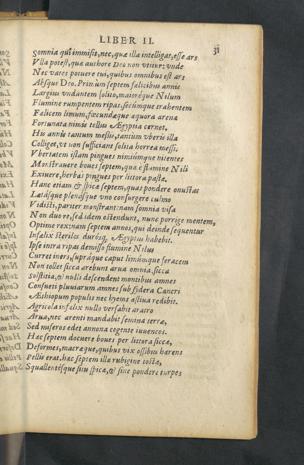 LIBER II.
31
Somnia quū immisit, nec, quæ illa intelligat, esse ars
Vlla potest, qua authore Deo non vtitur: vnde
Nec vates potuere tui, quibus omnibus est ars
Absque Deo. Primùm septem fœlicibus annis
Largiùs vndantem solito, maioréque Nilum
Flumine rumpentem ripas, secúmque trahentem
Fœlicem limum, fœcundáque æquora arena
Fortunata nimis tellus Ægyptia cernet,
His annis tantum messis, tantum vberis illa
Colliget, vt non sufficiant solita horrea messi,
Vbertatem istam pingues nimiúmque nitentes
Monstrauere boues septem, quæ è flumine Nili
Exiuere, herbas pingues per littora pastæ,
Hanc etiam & spicæ septem, quas pondere onustas
Latásque plenásque vno consurgere culmo
Vidisti, pariter monstrant: nam somnia visa
Non duo re, sed idem ostendunt, nunc porrige mentem,
Optime rex: nam septem annos, qui deinde sequentur
Infœlix sterilis durúsq; Ægyptus habebit.
Ipse intra ripas demisso flumine Nilus
Curret iners, supráque caput limúmque feracem
Non tollet sicca arebunt arua omnia sicca
Solstitia, & nullis descendent montibus amnes
Consueti pluuiarum amnes sub sydera Cancri
Æthiopum populis nec hyems astiua redibit.
Agricola infœlix nullo versabit aratro
Arua, nec arenti mandabit semina terræ,
Sed miseros edet annona cogente iuuencos.
Hac septem docuere boues per littora siccæ,
Deformes, macræque, quibus vix ossibus hærens
Pellis erat. hac septem illa rubigine tostæ,
Squallentésque situ spicæ, & sine pondere turpes